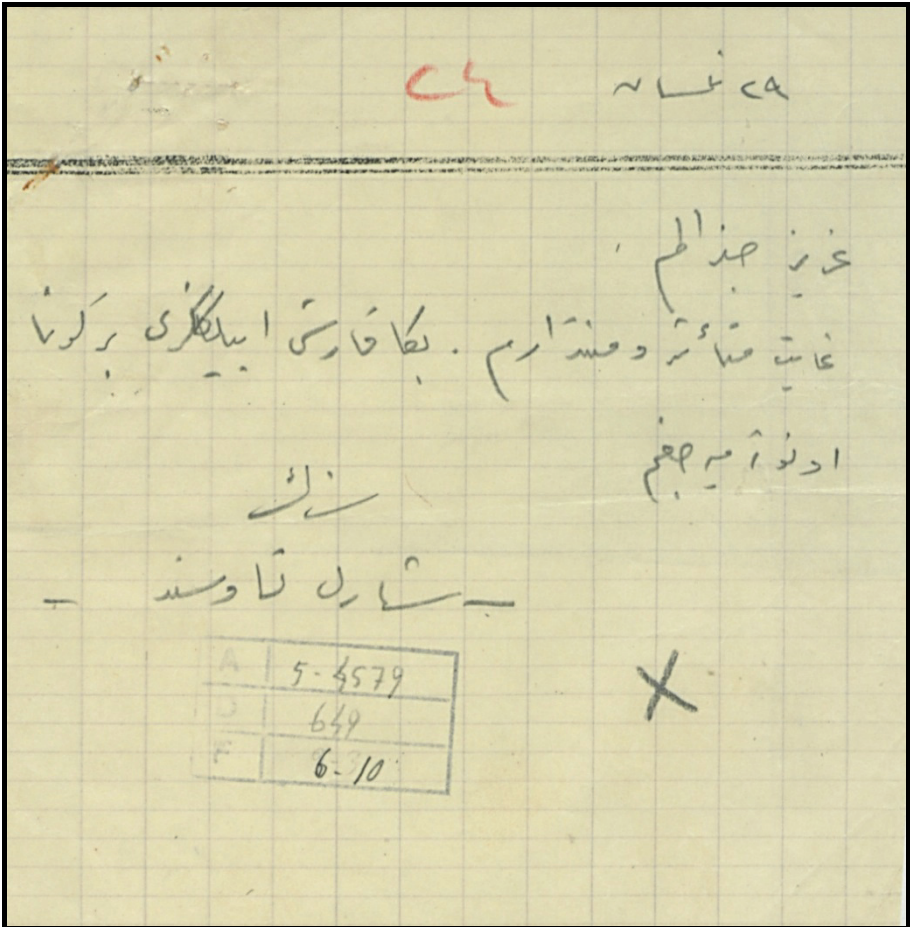 ٢٩ نيسان
عزيز جنرالم .
غايت متأثر و منتدارم . بكا قارشى اييلككزى بر كون
اونوتميه جغم
سزك
ـ شارل تاوسند ـ
A 5-4579
D 649
F 6-10
X